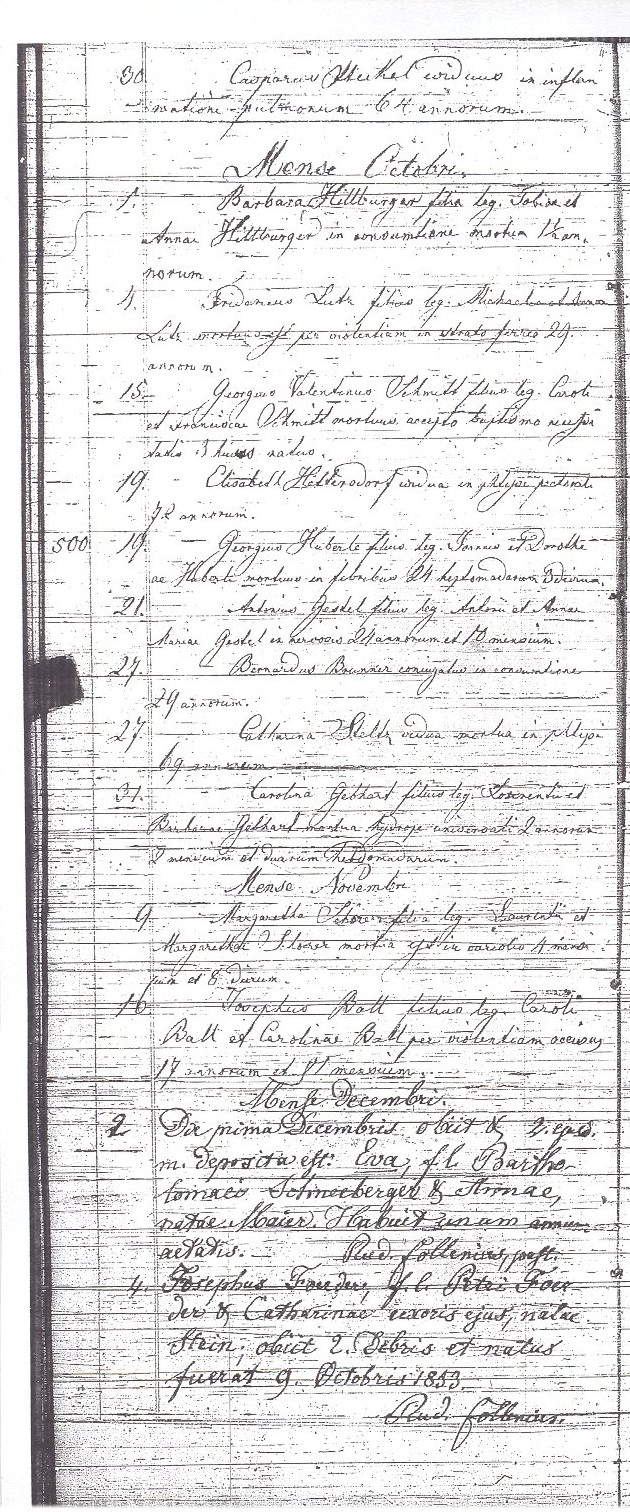 30. Casparus Stickel viduus in inflam
matione pulmonum 64 annorum.
Mense Octobri.
1. Barbara Hillburger filia leg. Tobiae et
Annae Hillburger in consumtione mortua 1½ an,
norum.
4. Fridericus Lutz filius leg. Michaelis et Annae
Lutz mortuus est per violentiam in strato ferreo 29.
annorum.
15. Georgius Valentinus Schmitt filius leg. Caroli
et Franciscae Schmitt mortuus accepto baptismo necessi
tatis 3 huius natus.
19. Elisabeth Hettersdorf vidua in phtysi pectorali
72 annorum.
500 19. Georgius Huberte filius leg. Joannis et Dorothe
ae Huberti mortuus in febribus 24 heptomadarum 3 dierum.
21. Antonius Gestel filius leg. Antonii et Annae
Mariae Gestel in nervosis 24 annorum et 10 mensium.
27. Bernardus Brunner conjugatus in consumtione
29 annorum.
27 Catharina Steltz vidua mortua in phtysi
69 annorum
31. Carolina Gebhart filius leg. Laurentii et
Barbarae Gebhart mortua hydrope universali 2 annorum
2 mensium et duarum hebdomadarum.
Mense Novembri
9. Margaretha Shorer filia leg. Laurentii et
Margarethae Shorer mortua est in variolis 4 men
sium et 8 dierum.
16 Josephus Balt filius leg. Caroli
Balt et Carolinae Balt per violentiam occisus
17 annorum et 11 mensium.
Mense Decembri.
2 Die prima Decembris obiit & 2. ejusd.
m. deposita est: Eva, f. l. Bartho-
lomaei Schneeberger & Annae,
natae Maier. Habuit unum annum
aetatis. Rud. Follenius, past.
4. Josephus Froeder, f. l. Petri Froe
der & Catharinae uxoris ejus, natae
Stein, obiit 2. Xebris et natus
fuerat 9. Octobris 1853.
Rud. Follenius.